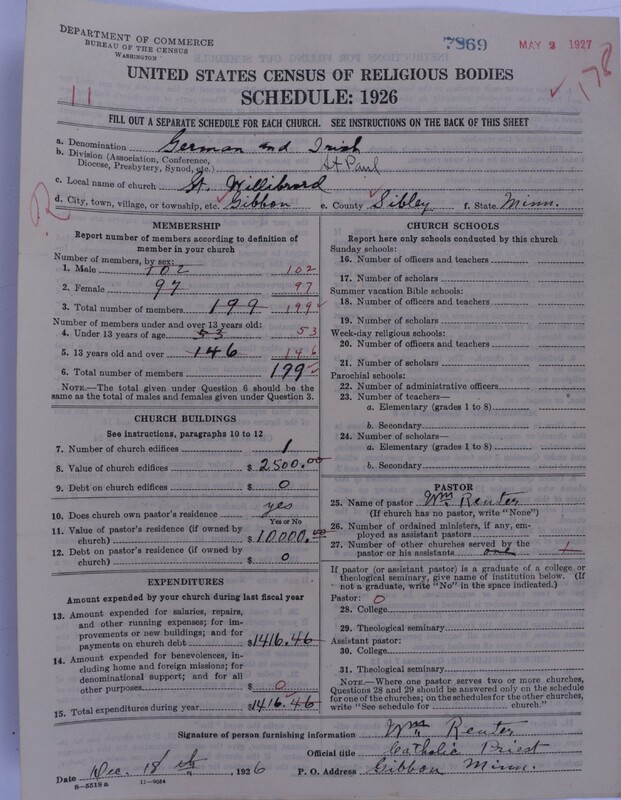 DEPARTMENT OF COMMERCE
BUREAU OF THE CENSUS
WASHINGTON
7869
MAY 2 1927
178
UNITED STATES CENSUS OF RELIGIOUS BODIES
SCHEDULE: 1926
11
FILL OUT A SEPARATE SCHEDULE FOR EACH CHURCH. SEE INSTRUCTIONS ON THE BACK OF THIS SHEET
a. Denomination German and Irish
b. Division (Association, Conference, Diocese, Presbytery, Synod, etc.) St Paul
c. Local name of church St. Willibrord
d. City, town, village, or township, etc. Gibbon e. County Sibley f. State Minn.
MEMBERSHIP
Report number of members according to definition of
member in your church
Number of members, by sex:
1. Male 102 102
2. Female 97 97
3. Total number of members 199 199
Number of members under and over 13 years old:
4. Under 13 years of age 53 53
5. 13 years old and over 146 146
6. Total number of members 199
NOTE.—The total given under Question 6 should be
same as the total of males and females given under Question 3.
CHURCH BUILDINGS
See instructions, paragraphs 10 to 12
7. Number of church edifices 1
8. Value of church edifices $ 2500.00
9. Debt on church edifices $ 0
10. Does church own pastor's residence yes
Yes or No
11. Value of pastor's residence (if owned by
church) $ 10000.00
12. Debt on pastor's residence (if owned by
church) $ 0
EXPENDITURES
Amount expended by your church during last fiscal year
13. Amount expended for salaries, repairs,
and other running expenses; for im-
provements or new buildings; and for
payments on church debt $1416.46
14. Amount expended for benevolences, in-
cluding home and foreign missions; for
denominational support; and for all
other purposes $ 0
15. Total expenditures during year $1416.46
CHURCH SCHOOLS
Report here only schools conducted by this church
Sunday schools:
16. Number of officers and teachers
17. Number of scholars
Summer vacation Bible schools:
18. Number of officers and teachers
19. Number of scholars
Week-day religious schools:
20. Number of officers and teachers
21. Number of scholars
Parochial schools:
22. Number of administrative officers
23. Number of teachers—
a. Elementary (grades 1 to 8)
b. Secondary
24. Number of scholars—
a. Elementary (grades 1 to 8)
b. Secondary
PASTOR
25. Name of pastor Wm Reuter
(If church has no pastor, write "None")
26. Number of ordained ministers, if any, em-
ployed as assistant pastors
27. Number of other churches served by the
pastor or his assistants one 1
If pastor (or assistant pastor) is a graduate of a college or
theological seminary, give name of institution below. (If
not a graduate, write "No" in the space indicated.)
Pastor: 0
28. College
29. Theological seminary
Assistant pastor:
30. College
31. Theological seminary
NOTE.—Where one pastor serves two or more churches,
Questions 28 and 29 should be answered only on the schedule
for one of the churches; on the schedules for the other churches,
write "See schedule for church."
Signature of person furnishing information Wm Reuter
Official title Catholic Priest
Date Dec. 18 th, 1926 P. O. Address Gibbon Minn.
8-5518a 11-9064